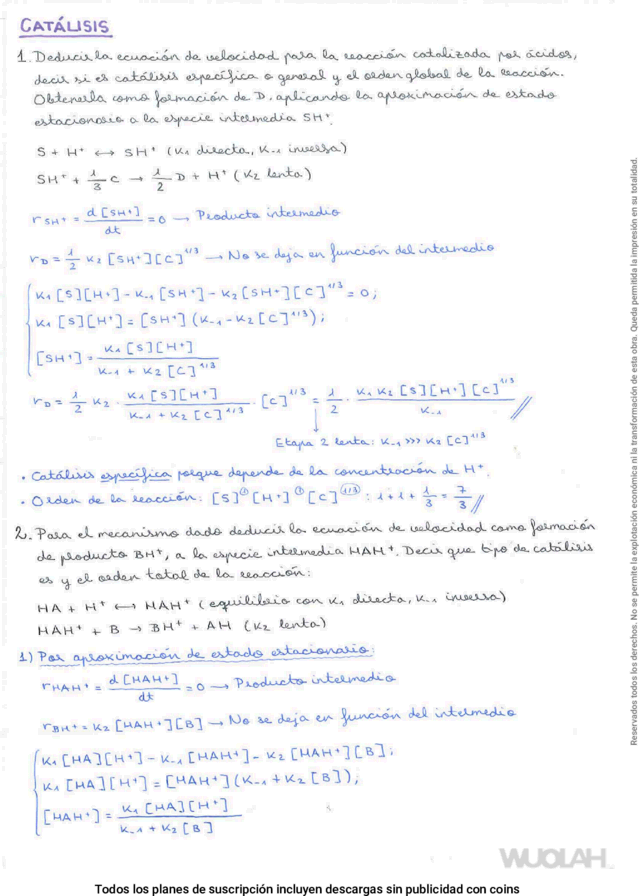 CATÁLISIS
1. Deducir la ecuación de velocidad para la reacción catalizada por ácidos,
decir si es catálisis específica o general y el orden global de la reacción.
Obtenerla como formación de D, aplicando la aproximación de estado
estacionario a la especie intermedia SH⁺.
S + H⁺ ⟷ SH⁺ (K₁ directa, K₋₁ inversa)
SH⁺ + 1/3 C → 1/2 D + H⁺ (K₂ lenta)
r SH⁺ = d[SH⁺]/dt = 0 → Producto intermedio
r_D = 1/2 K₂ [SH⁺][C]^1/3 → No se deja en función del intermedio
K₁[S][H⁺] - K₋₁[SH⁺] - K₂[SH⁺][C]^1/3 = 0;
K₁[S][H⁺] = [SH⁺](K₋₁ - K₂[C]^1/3);
[SH⁺] = K₁[S][H⁺] / K₋₁ + K₂[C]^1/3
r_D = 1/2 K₂ · K₁[S][H⁺] / K₋₁ + K₂[C]^1/3 · [C]^1/3 = 1/2 · K₁K₂[S][H⁺][C]^1/3 / K₋₁ //
Etapa 2 lenta: K₋₁ >>> K₂[C]^1/3
· Catálisis específica porque depende de la concentración de H⁺.
· Orden de la reacción: [S]^① [H⁺]^① [C]^(1/3) : 1 + 1 + 1/3 = 7/3 //
2. Para el mecanismo dado deducir la ecuación de velocidad como formación
de producto BH⁺, a la especie intermedia HAH⁺. Decir que tipo de catálisis
es y el orden total de la reacción:
HA + H⁺ ⟷ HAH⁺ (equilibrio con K₁ directa, K₋₁ inversa)
HAH⁺ + B → BH⁺ + AH (K₂ lenta)
1) Por aproximación de estado estacionario:
r HAH⁺ = d[HAH⁺]/dt = 0 → Producto intermedio
r BH⁺ = K₂[HAH⁺][B] → No se deja en función del intermedio
K₁[HA][H⁺] - K₋₁[HAH⁺] - K₂[HAH⁺][B];
K₁[HA][H⁺] = [HAH⁺](K₋₁ + K₂[B]);
[HAH⁺] = K₁[HA][H⁺] / K₋₁ + K₂[B]
Reservados todos los derechos. No se permite la explotación económica ni la transformación de esta obra. Queda permitida la impresión en su totalidad.
WUOLAH
Todos los planes de suscripción incluyen descargas sin publicidad con coins